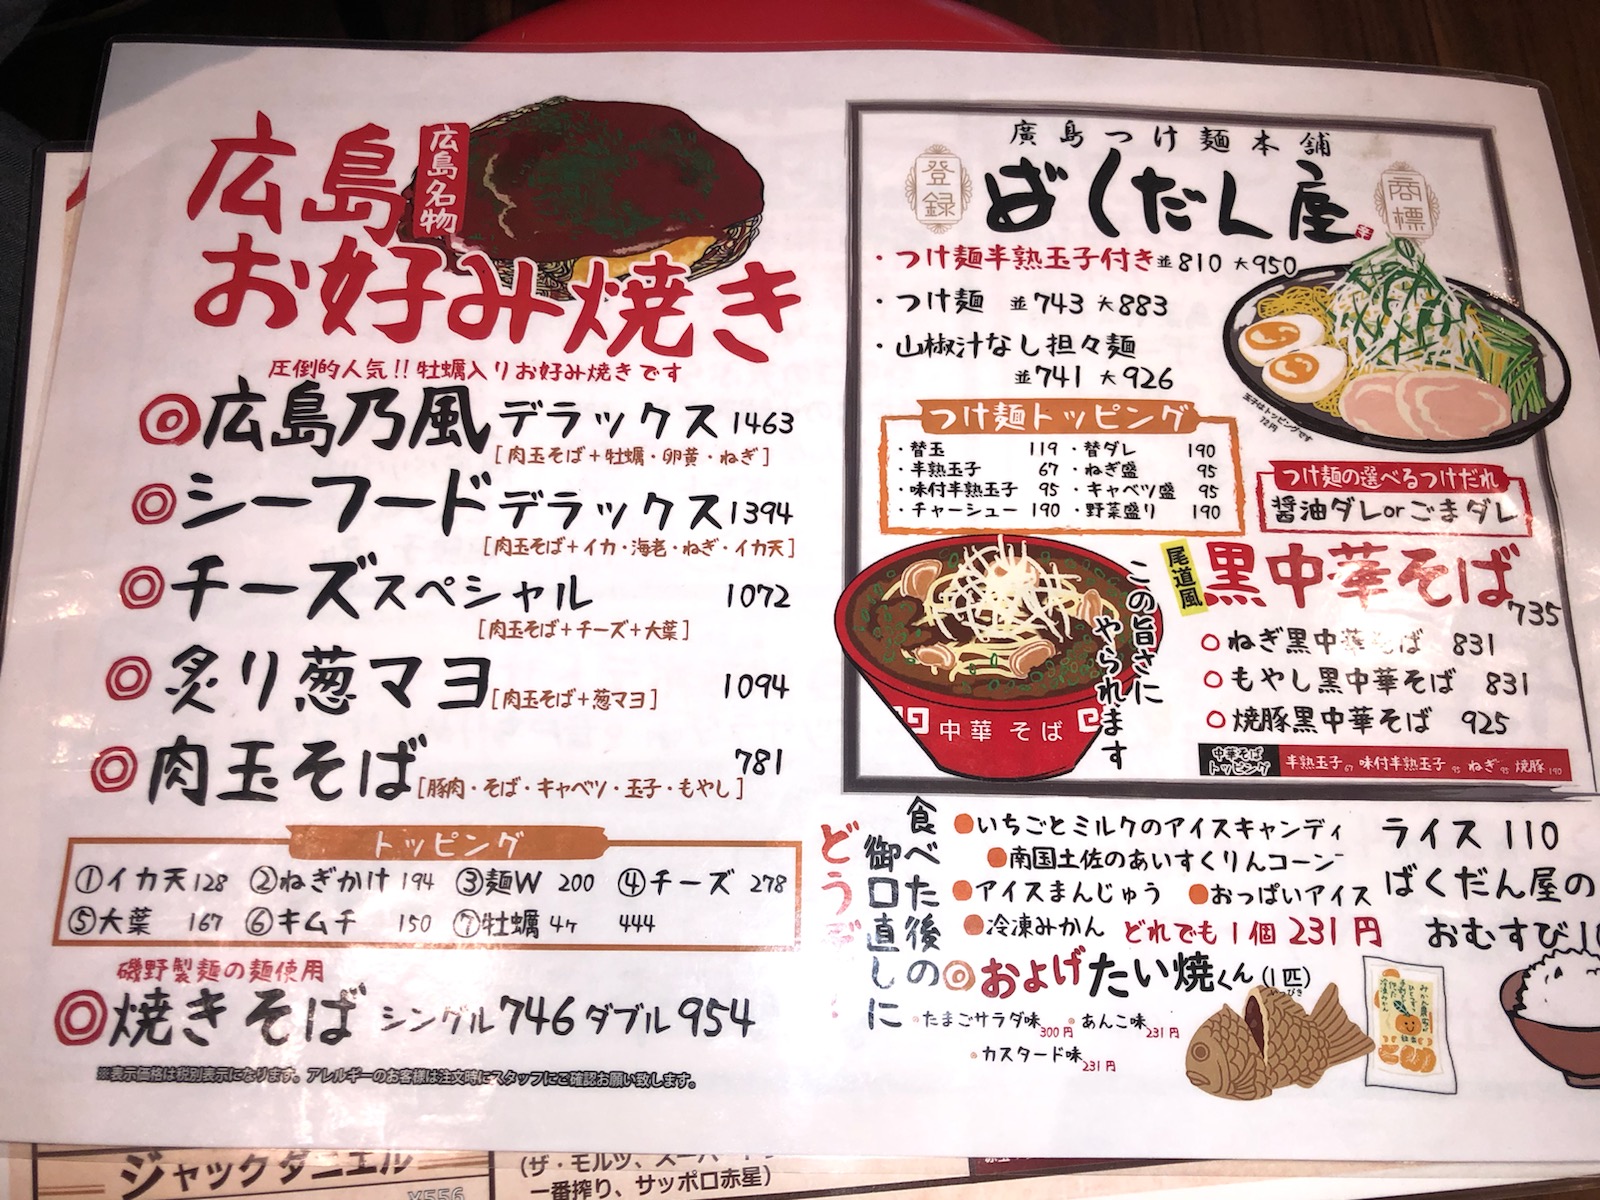 広島
広島名物
お好み焼き
圧倒的人気!!牡蠣入りお好み焼きです
◎広島乃風デラックス 1463
[肉玉そば+牡蠣・卵黄・ねぎ]
◎シーフードデラックス 1394
[肉玉そば+イカ・海老・ねぎ・イカ天]
◎チーズスペシャル 1072
[肉玉そば+チーズ+大葉]
◎炙り葱マヨ[肉玉そば+葱マヨ] 1094
◎肉玉そば[豚肉・そば・キャベツ・玉子・もやし] 781
トッピング
①イカ天128 ②ねぎかけ194 ③麺W 200 ④チーズ 278
⑤大葉 167 ⑥キムチ 150 ⑦牡蠣4ヶ 444
磯野製麺の麺使用
◎焼きそば シングル746 ダブル954
※表示価格は税別表示になります。アレルギーのお客様は注文時にスタッフにご確認お願い致します。
廣島つけ麺本舗
登録
ばくだん屋
商標
・つけ麺半熟玉子付き 並810 大950
・つけ麺 並743 大883
・山椒汁なし担々麺
並741 大926
玉子はトッピングです
72円
つけ麺トッピング
・替玉 119 ・替ダレ 190
・半熟玉子 67 ・ねぎ盛 95
・味付半熟玉子 95 ・キャベツ盛 95
・チャーシュー 190 ・野菜盛り 190
つけ麺の選べるつけだれ
醤油ダレorごまダレ
中華そば
この旨さに
やられます
尾道風
黒中華そば 735
○ねぎ黒中華そば 831
○もやし黒中華そば 831
○焼豚黒中華そば 925
中華そば
トッピング
半熟玉子67 味付半熟玉子95 ねぎ95 焼豚190
食べた後の
御口直しに
どうぞ
●いちごとミルクのアイスキャンディ
●南国土佐のあいすくりんコーン
●アイスまんじゅう ●おっぱいアイス
●冷凍みかん どれでも1個231円
◎およげたい焼くん(1匹)
ぴき
たまごサラダ味300円 あんこ味231円
カスタード味231円
ライス 110
ばくだん屋の
おむすび
ジャックダニエル
¥556
(ザ・モルツ、
一番搾り、サッポロ赤星)